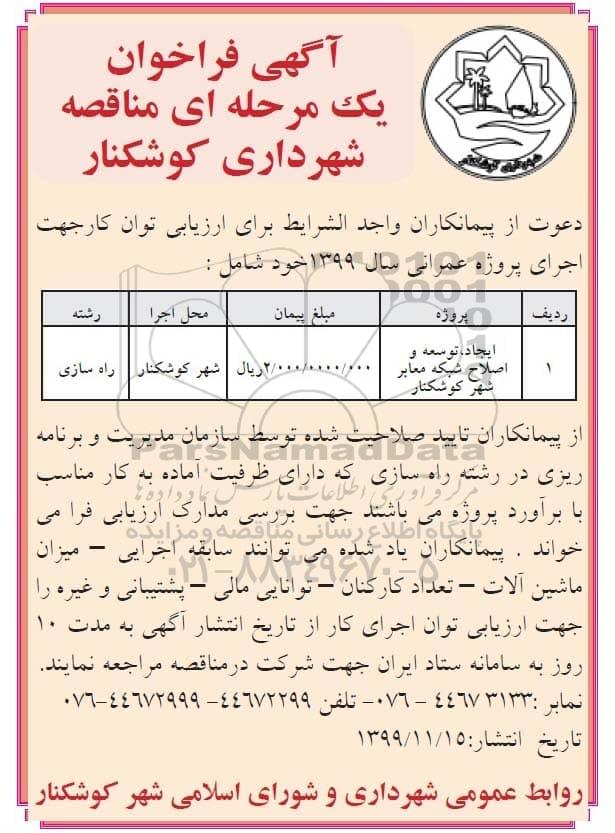 آگهی فراخوان
یک مرحله ای مناقصه
شهرداری کوشکنار
شهرداری کوشکنار
دعوت از پیمانکاران واجد الشرایط برای ارزیابی توان کارجهت
اجرای پروژه عمرانی سال ۱۳۹۹خود شامل :
ردیف پروژه مبلغ پیمان محل اجرا رشته
۱ ایجاد،توسعه و اصلاح شبکه معابر شهر کوشکنار ۲/۰۰۰/۰۰۰۰/۰۰۰ریال شهر کوشکنار راه سازی
از پیمانکاران تایید صلاحیت شده توسط سازمان مدیریت و برنامه
ریزی در رشته راه سازی که دارای ظرفیت آماده به کار مناسب
با برآورد پروژه می باشند جهت بررسی مدارک ارزیابی فرا می
خواند . پیمانکاران یاد شده می توانند سابقه اجرایی – میزان
ماشین آلات – تعداد کارکنان – توانایی مالی – پشتیبانی و غیره را
جهت ارزیابی توان اجرای کار از تاریخ انتشار آگهی به مدت ۱۰
روز به سامانه ستاد ایران جهت شرکت درمناقصه مراجعه نمایند.
نمابر :۳۱۳۳ ۴۴۶۷ - ۰۷۶- تلفن ۴۴۶۷۲۲۹۹- ۴۴۶۷۲۹۹۹-۰۷۶
تاریخ انتشار:۱۳۹۹/۱۱/۱۵
روابط عمومی شهرداری و شورای اسلامی شهر کوشکنار
ParsNamadData
مرکز فرآوری اطلاعات پارس نماد داده ها
پایگاه اطلاع رسانی مناقصه و مزایده
۰۲۱-۸۸۳۴۹۶۷۰-۵